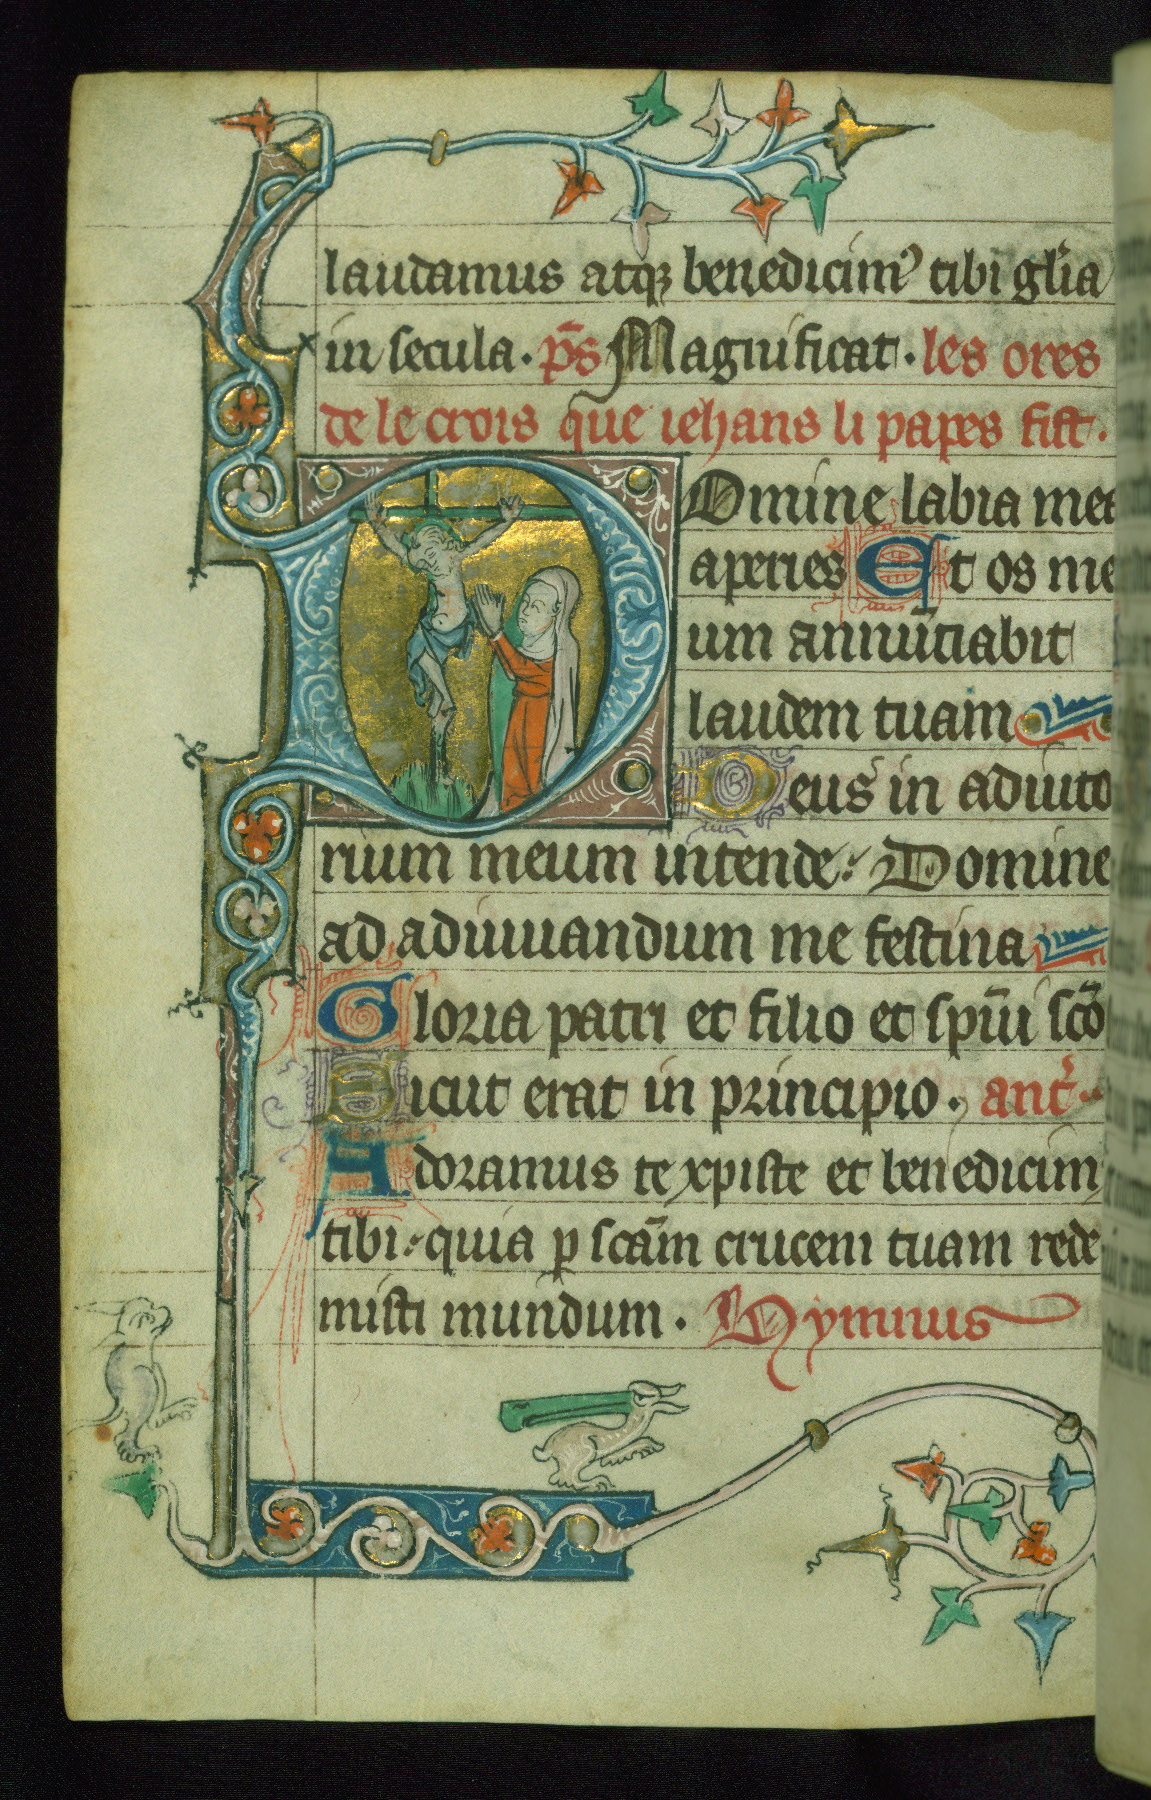 laudamus atqꝫ benedicimꝰ tibi gl'ia
in secula. p̄s Magnificat. les ores
de le crois que iehans li papes fist.
Domine labia mea
aperies Et os me
um annūciabit
laudem tuam
Deus in adiuto
rium meum intende. Domine
ad adiuuandum me festina
Gloria patri et filio et sp̄ui sc̄o
Sicut erat in principio. ant'.
Adoramus te xpiste et benedicim
tibi. quia ꝑ sc̄am crucem tuam rede
misti mundum. Hymnus